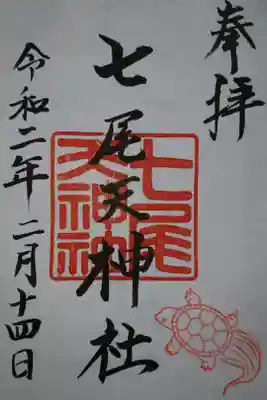 奉拝
七尾天神社
七尾天神社
令和二年二月十四日